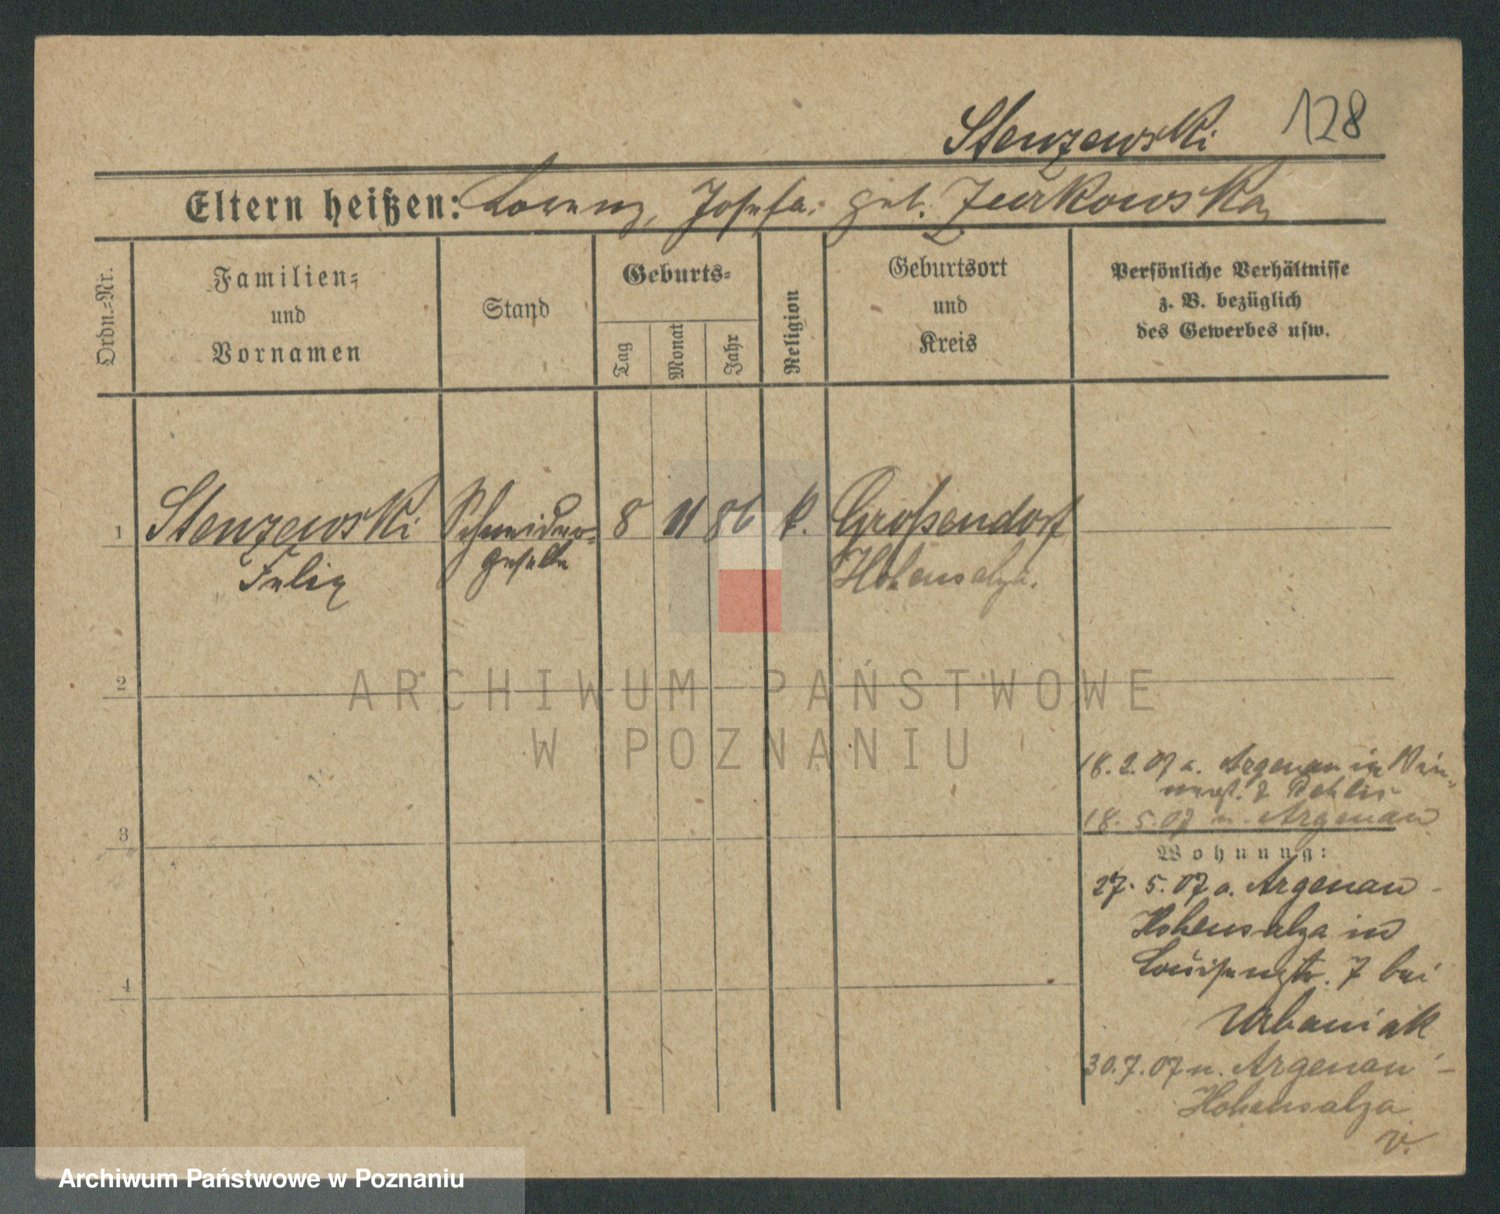 Stenzewski 128
Eltern heißen: Lorenz, Josefa geb. Zurkowska
Ordn.=Nr.
Familien=
und
Vornamen
Stand
Geburts=
Tag
Monat
Jahr
Religion
Geburtsort
und
Kreis
Persönliche Verhältnisse
z. B. bezüglich
des Gewerbes usw.
1 Stenzewski Schneider= 8 11 86 k. Großendorf
Felix geselle Hohensalza.
2
ARCHIWUM PAŃSTWOWE
W POZNANIU
18. 2. 07 a. Argenau in
18. 5. 07 n. Argenau
3
Wohnung:
27. 5. 07 a. Argenau -
Hohensalza in
Louisenstr. 7 bei
4
Urbaniak
30. 7. 07 n. Argenau -
Hohensalza
v.
Archiwum Państwowe w Poznaniu